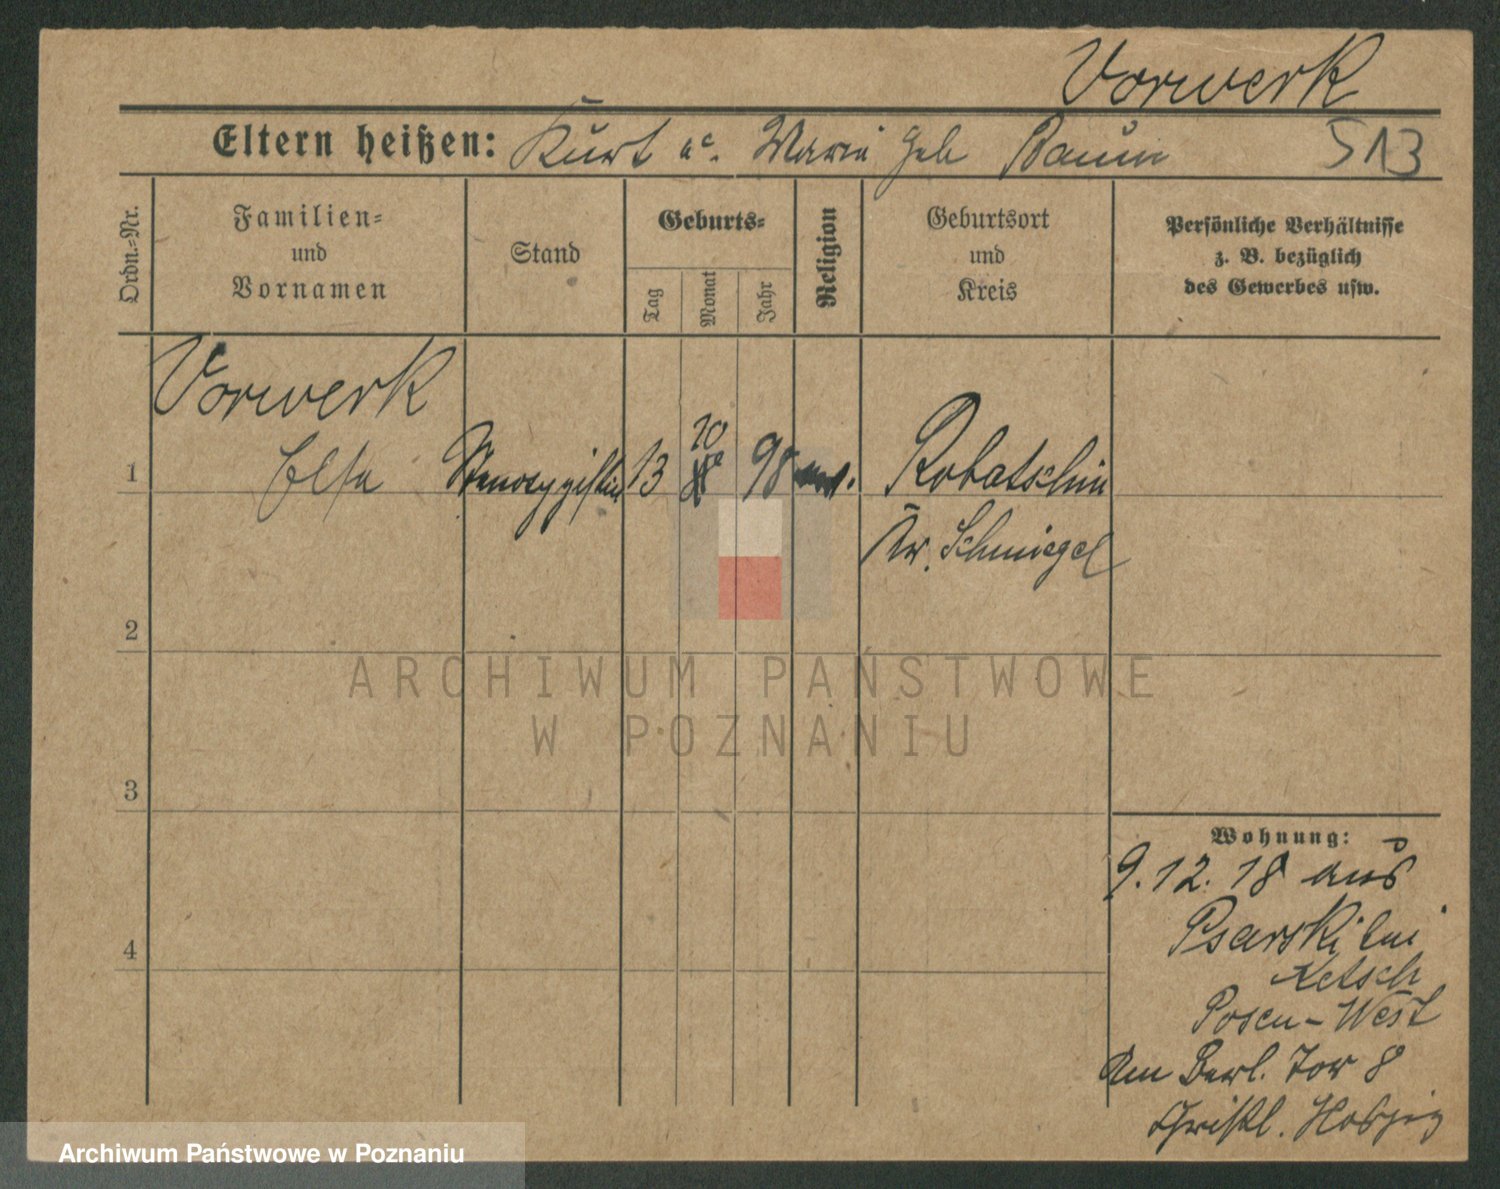 Vorwerk
Eltern heißen: Kurt u. Maria geb Baum
513
Ordn.=Nr.
Familien=
und
Vornamen
Stand
Geburts=
Tag
Monat
Jahr
Religion
Geburtsort
und
Kreis
Persönliche Verhältnisse
z. B. bezüglich
des Gewerbes usw.
Vorwerk
1 Elsa Stenotypistin 13 10 98 Robatschin
Kr. Schmiegel
2
3
4
Wohnung:
9.12.18 aus
Psarski bei
Ketsch
Posen-West
Am Berl. Tor 8
Christl. Hospiz
ARCHIWUM PAŃSTWOWE
W POZNANIU
Archiwum Państwowe w Poznaniu